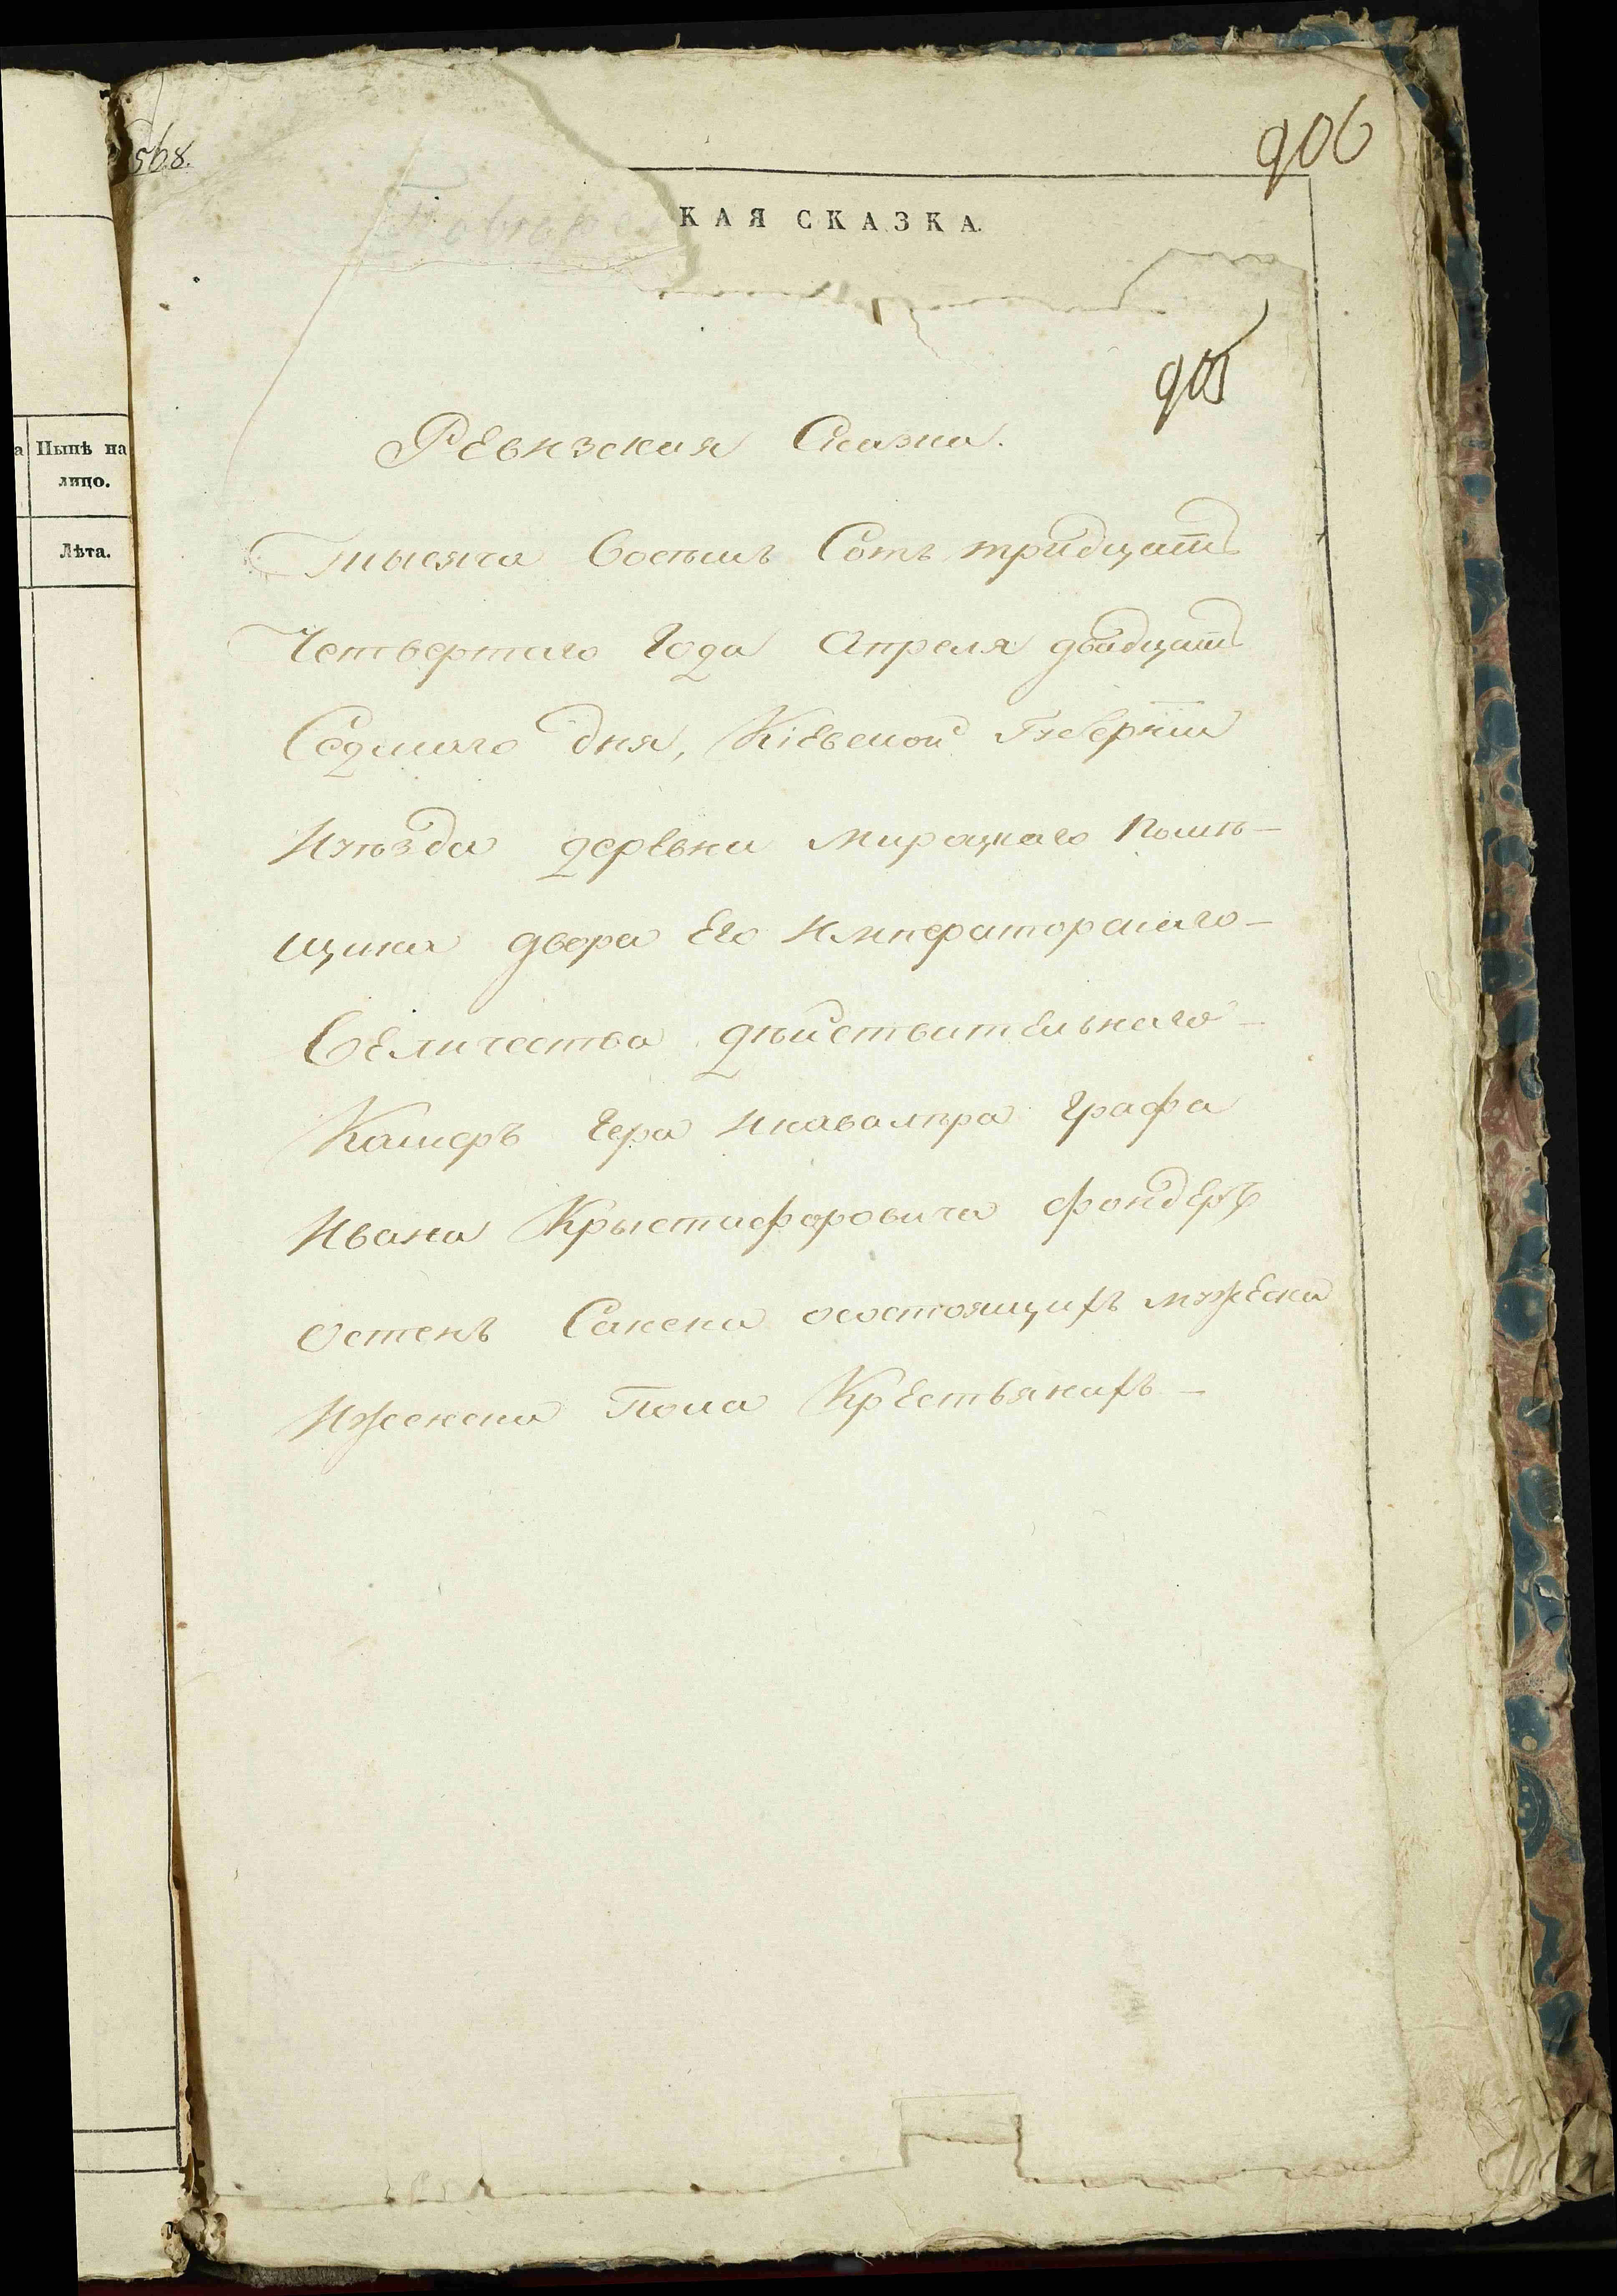 568.
906
КАЯ СКАЗКА.
905
Нынѣ на
лицо.
Лѣта.
Ревизская Сказка.
Тысяча Восемь Сотъ тридцать
Четвертаго Года Апреля двадцать
Седмаго дня, Кіевской Губерніи
Иуѣзда деревни Мирацкаго Помѣ-
щика двора Его Императорскаго-
Величества дѣйствительнаго-
Камеръ Гера Икавалѣра Графа
Ивана Крыстафоровича Фондеръ
Остенъ Сакена осостоящихъ мужеска
Иженска Пола Крестьянахъ-